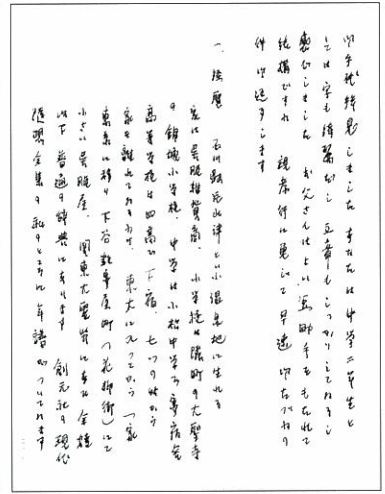 御手紙拝見しました あなたは中学二年生と
しては字も綺麗だし 文章もしっかりしてゐるし
感心しました お父さんはよい助手をもたれて
結構ですね 親孝行に免じて 早速 御たづねの
件御返事します
一、経歴 石川県片山津といふ小温泉地に生れる
家は呉服雑貨商、小学校は隣町の大聖寺
の錦城小学校、中学は小松中学の寄宿舎
高等学校は四高で下宿、七つの時から
家を離れてゐるわけ、東大に入ってから 一家
東京に移り 下谷数寄屋町(花柳街)にて
小さい呉服屋、関東大震災にあひ全焼
以下 普通の辞典にあります 創元社の現代
随想全集の私のところに年譜がついてゐます